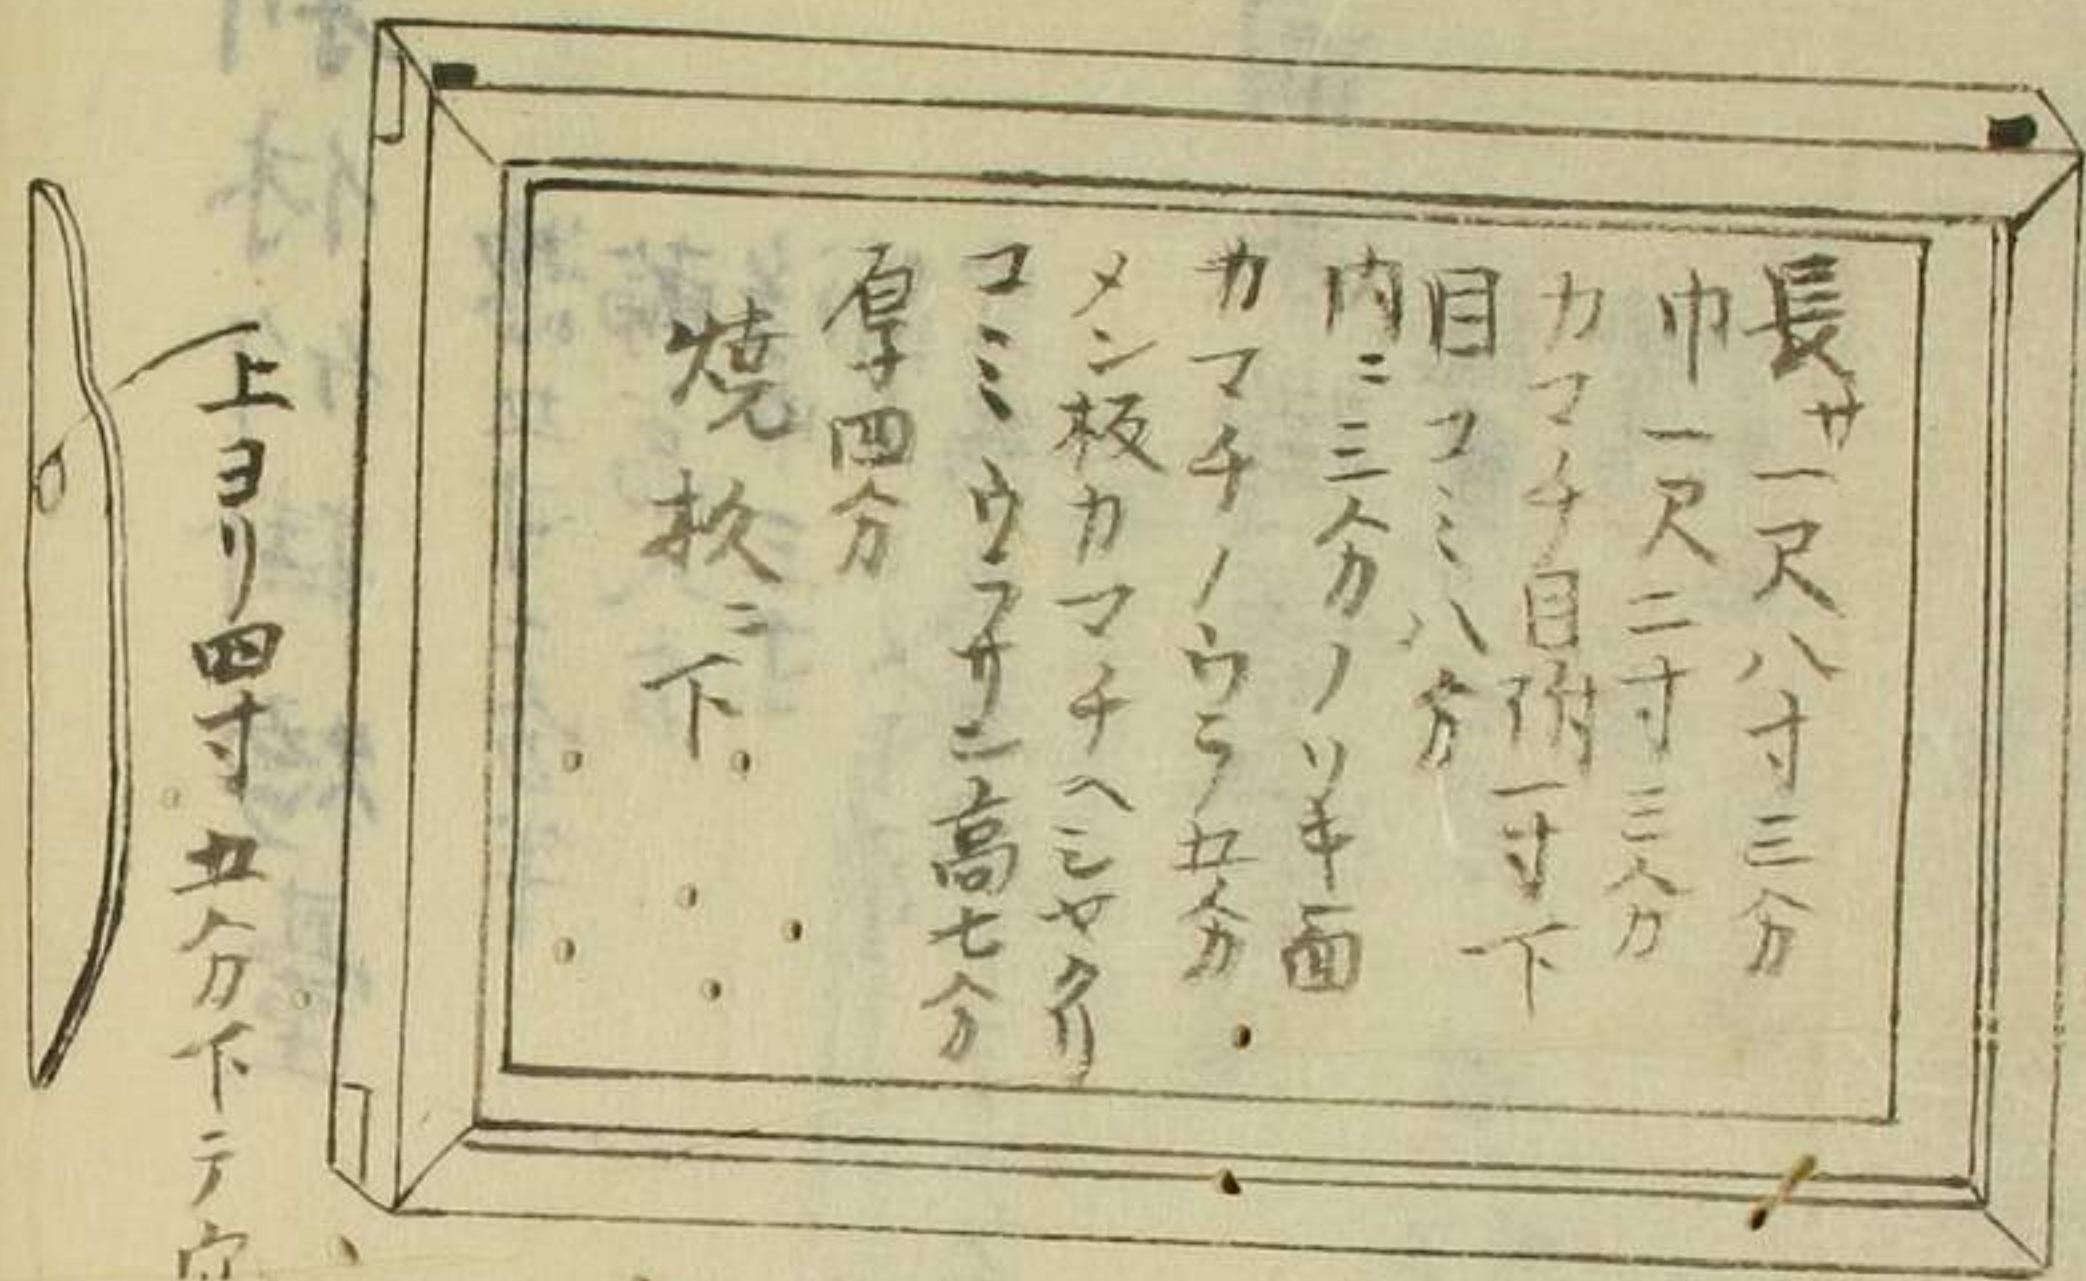 長サ一尺八寸三分
巾一尺二寸三分
カマチ目附一寸下
目コミ八分
内ニ三分ノリキ面
カマチノウラ五分
メン板カマチヘシヤクリ
コミウラサン高七分
厚四分
焼杉ニ下
上ヨリ四寸五分下テ穴